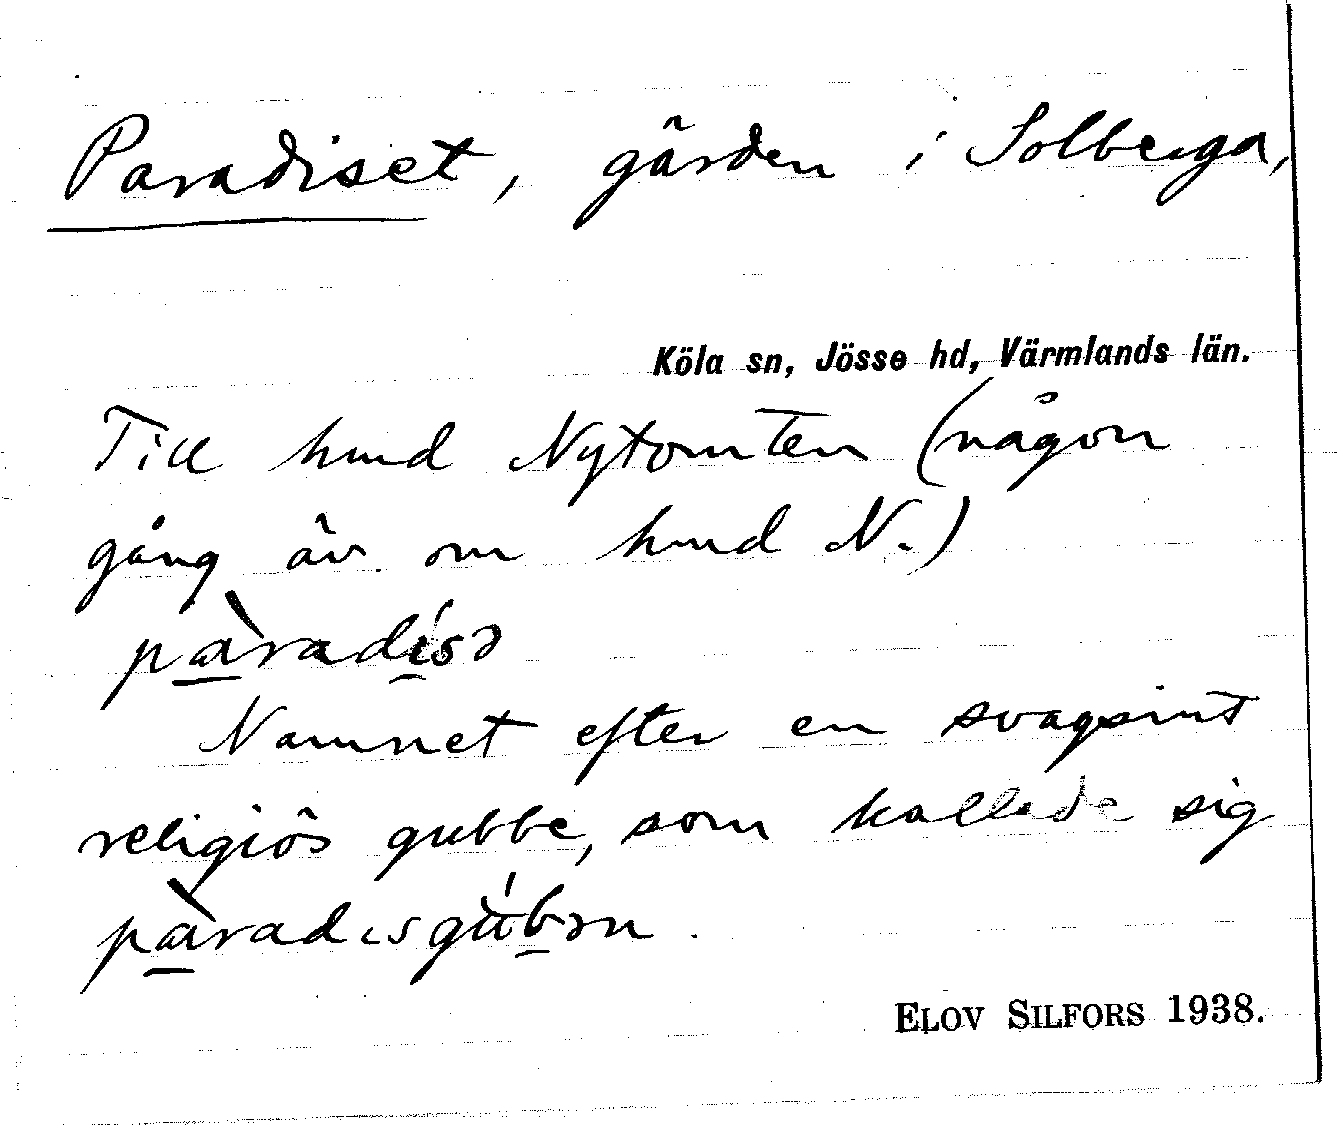 Paradiset, gården i Solberga,
Köla sn, Jösse hd, Värmlands län.
Till hmd Nytomten (någon
gång äv. om hmd N.)
pàradísə
Namnet efter en svagsint
religiös gubbe, som kallade sig
pàradɪsgúbən.
ELOV SILFORS 1938.